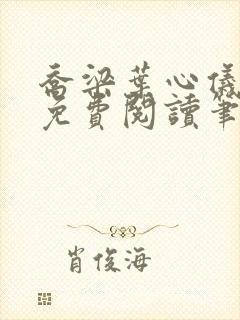 喬梁葉心儀
免費閱讀筆
肖俊海